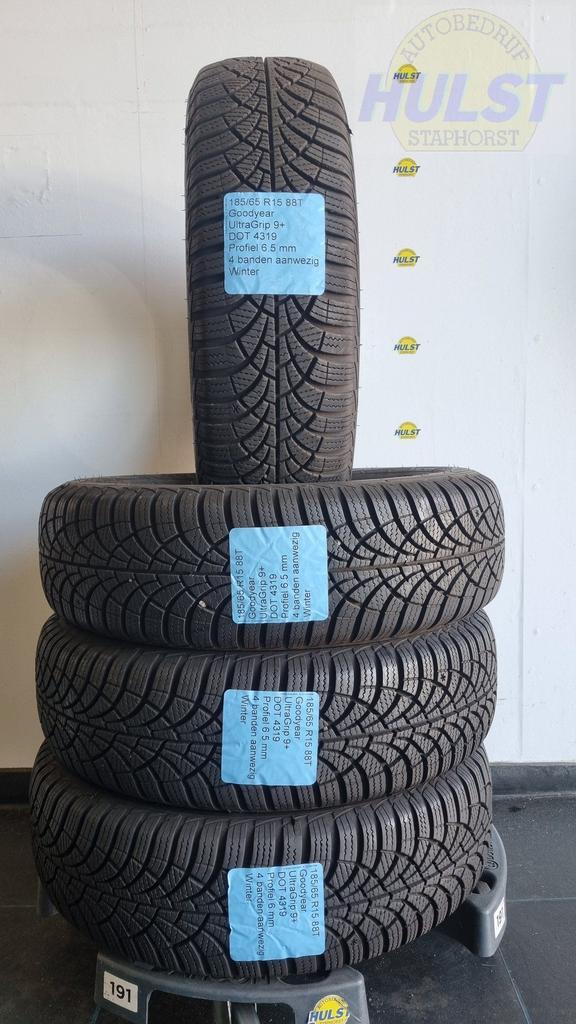 AUTOBEDRIJF
HULST
STAPHORST
HULST
HULST
HULST
HULST
HULST
185/65 R15 88T
Goodyear
UltraGrip 9+
DOT 4319
Profiel 6.5 mm
4 banden aanwezig
Winter
185/65 R15 88T
Goodyear
UltraGrip 9+
DOT 4319
Profiel 6.5 mm
4 banden aanwezig
Winter
185/65 R15 88T
Goodyear
UltraGrip 9+
DOT 4319
Profiel 6.5 mm
4 banden aanwezig
Winter
185/65 R15 88T
Goodyear
UltraGrip 9+
DOT 4319
Profiel 6 mm
4 banden aanwezig
Winter
191
191
HULST